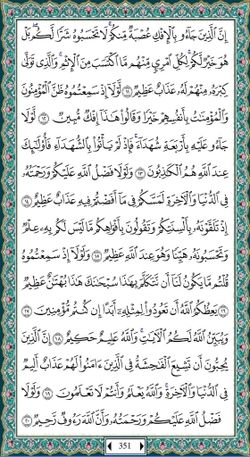 إِنَّ الَّذِينَ جَاءُو بِالْإِفْكِ عُصْبَةٌ مِنْكُمْ لَا تَحْسَبُوهُ شَرًّا لَكُمْ بَلْ
هُوَ خَيْرٌ لَكُمْ لِكُلِّ امْرِئٍ مِنْهُمْ مَا اكْتَسَبَ مِنَ الْإِثْمِ وَالَّذِي تَوَلَّىٰ
كِبْرَهُ مِنْهُمْ لَهُ عَذَابٌ عَظِيمٌ ١١ لَوْلَا إِذْ سَمِعْتُمُوهُ ظَنَّ الْمُؤْمِنُونَ
وَالْمُؤْمِنَاتُ بِأَنْفُسِهِمْ خَيْرًا وَقَالُوا هَٰذَا إِفْكٌ مُبِينٌ ١٢ لَوْلَا
جَاءُو عَلَيْهِ بِأَرْبَعَةِ شُهَدَاءَ فَإِذْ لَمْ يَأْتُوا بِالشُّهَدَاءِ فَأُولَٰئِكَ
عِنْدَ اللَّهِ هُمُ الْكَاذِبُونَ ١٣ وَلَوْلَا فَضْلُ اللَّهِ عَلَيْكُمْ وَرَحْمَتُهُ
فِي الدُّنْيَا وَالْآخِرَةِ لَمَسَّكُمْ فِي مَا أَفَضْتُمْ فِيهِ عَذَابٌ عَظِيمٌ ١٤
إِذْ تَلَقَّوْنَهُ بِأَلْسِنَتِكُمْ وَتَقُولُونَ بِأَفْوَاهِكُمْ مَا لَيْسَ لَكُمْ بِهِ عِلْمٌ
وَتَحْسَبُونَهُ هَيِّنًا وَهُوَ عِنْدَ اللَّهِ عَظِيمٌ ١٥ وَلَوْلَا إِذْ سَمِعْتُمُوهُ
قُلْتُمْ مَا يَكُونُ لَنَا أَنْ نَتَكَلَّمَ بِهَٰذَا سُبْحَانَكَ هَٰذَا بُهْتَانٌ عَظِيمٌ
١٦ يَعِظُكُمُ اللَّهُ أَنْ تَعُودُوا لِمِثْلِهِ أَبَدًا إِنْ كُنْتُمْ مُؤْمِنِينَ ١٧
وَيُبَيِّنُ اللَّهُ لَكُمُ الْآيَاتِ وَاللَّهُ عَلِيمٌ حَكِيمٌ ١٨ إِنَّ الَّذِينَ
يُحِبُّونَ أَنْ تَشِيعَ الْفَاحِشَةُ فِي الَّذِينَ آمَنُوا لَهُمْ عَذَابٌ أَلِيمٌ
فِي الدُّنْيَا وَالْآخِرَةِ وَاللَّهُ يَعْلَمُ وَأَنْتُمْ لَا تَعْلَمُونَ ١٩ وَلَوْلَا
فَضْلُ اللَّهِ عَلَيْكُمْ وَرَحْمَتُهُ وَأَنَّ اللَّهَ رَءُوفٌ رَحِيمٌ ٢٠
351